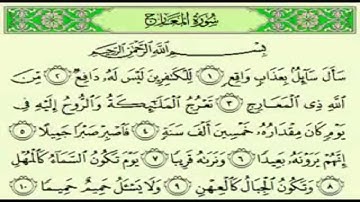 سُورَةُ المَعَارِجِ
بِسْمِ اللَّهِ الرَّحْمَٰنِ الرَّحِيمِ
سَأَلَ سَائِلٌ بِعَذَابٍ وَاقِعٍ ١ لِلْكَافِرِينَ لَيْسَ لَهُ دَافِعٌ ٢ مِّنَ
اللَّهِ ذِي الْمَعَارِجِ ٣ تَعْرُجُ الْمَلَائِكَةُ وَالرُّوحُ إِلَيْهِ فِي
يَوْمٍ كَانَ مِقْدَارُهُ خَمْسِينَ أَلْفَ سَنَةٍ ٤ فَاصْبِرْ صَبْرًا جَمِيلًا ٥
إِنَّهُمْ يَرَوْنَهُ بَعِيدًا ٦ وَنَرَاهُ قَرِيبًا ٧ يَوْمَ تَكُونُ السَّمَاءُ كَالْمُهْلِ
٨ وَتَكُونُ الْجِبَالُ كَالْعِهْنِ ٩ وَلَا يَسْأَلُ حَمِيمٌ حَمِيمًا ١٠